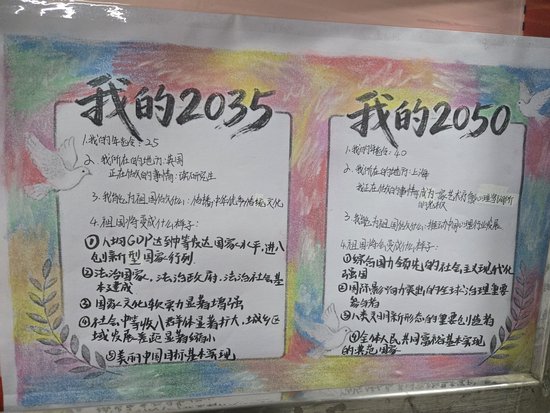 我的2035
1.我的年龄:25
2.我所在的地方:英国
正在做的事情:读研究生
3.我能为祖国做什么:传播中华优秀传统文化
4.祖国将变成什么样子:
①人均GDP达到中等发达国家水平,进入
创新型国家行列
②法治国家,法治政府,法治社会基
本建成
③国家文化软实力显著增强
④社会中等收入群体显著扩大,城乡区
域发展差距显著缩小
⑤美丽中国目标基本实现
我的2050
1.我的年龄:40
2.我所在的地方:上海
我正在做的事情:成为一家艺术疗愈心理学
的老板
3.我能为祖国做什么:推动中国心理行业发展
4.祖国将会变成什么样子:
①综合国力领先的社会主义现代化
强国
②国际影响力突出的全球治理重要
③人类文明新形态的重要创造者
④全体人民共同富裕基本实现
的典范国家